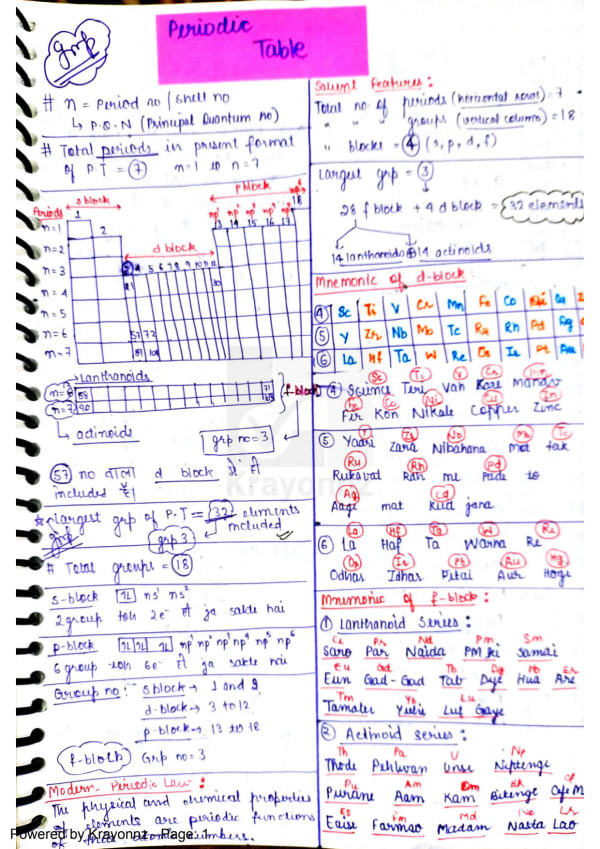 Periodic
Table
grp
# n = Period no / shell no
↳ P.Q.N (Principal Quantum no)
# Total periods in present format
of P.T = 7 n=1 to n=7
s block
p block
Periods
1
18
n=1
2
np¹ np² np³ np⁴ np⁵ np⁶
13 14 15 16 17
n=2
d block
n=3
3 4 5 6 7 8 9 10 11 12
n=4
21 30
n=5
n=6
57 72
n=7
89 104
Lanthanoids
n=6 58 71
n=7 90
(f-block)
↳ actinoids
grp no=3
57 no वाला d block में है
included है।
☆ Largest grp of P.T = 32 elements
grp 3 included
# Total groups = 18
s-block 1L ns¹ ns²
2 group toh 2e⁻ hi ja sakte hai
p-block 1L 1L 1L np¹ np² np³ np⁴ np⁵ np⁶
6 group toh 6e⁻ hi ja sakte hai
Group no: s block → 1 and 2
d-block → 3 to 12
p-block → 13 to 18
f-block Grp no=3
Modern Periodic Law:
The physical and chemical properties
of elements are periodic functions
of their atomic numbers.
Salient Features:
Total no of periods (horizontal rows) = 7
" " " groups (vertical column) = 18
" blocks = 4 (s, p, d, f)
Largest grp = 3
28 f block + 4 d block = 32 elements
14 lanthanoids 14 actinoids
Mnemonic of d-block:
4 Sc Ti V Cr Mn Fe Co Ni Cu
5 Y Zr Nb Mo Tc Ru Rh Pd Ag
6 La Hf Ta W Re Os Ir Pt Au
Sc Ti V Cr Mn
4 Science Teri Van Kare Mandir
Fe Co Ni Cu Zn
Fir Kon Nikale Copper Zinc
Y Zr Nb Mo Tc
5 Yaari Zara Nibahana Mot tak
Ru Rh Pd
Rukavat Rah me Pade to
Ag Cd
Aage mat Kud jana
La Hf Ta W Re
6 La Haf Ta Warna Re
Os Ir Pt Au Hg
Odhar Idhar Pitai Aur Hoge
Mnemonic of f-block:
① Lanthanoid Series:
Ce Pr Nd Pm Sm
Saro Par Naida PM ki Samai
Eu Gd Tb Dy Ho Er
Eun Gad-Gad Tab Dye Hua Are
Tm Yb Lu
Tamater Yulie Lut Gaye
② Actinoid series:
Th Pa U Np
Thode Pehlwan Unse Niptenge
Pu Am Cm Bk Cf
Purane Aam Kam Bikenge
Es Fm Md No Lr
Eaise Farmao Madam Nasta Lao
Krayonnz
Powered by Krayonnz - Page: 1